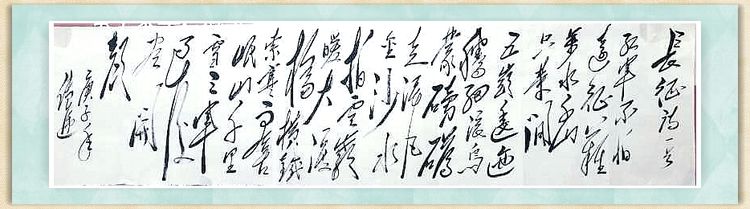 長征詩一首
红军不怕
遠征難
萬水千山
只等闲
五嶺逶迤
腾细浪烏
蒙磅礴
走泥丸
金沙水
拍雲崖
暖大渡
橋横鐵
索寒更喜
岷山千里
雪三軍
过后
尽開
颜
庚子年